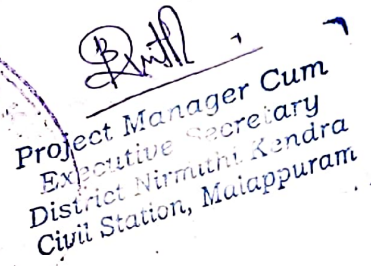 Project Manager Cum
Executive Secretary
District Nirmithi Kendra
Civil Station, Malappuram